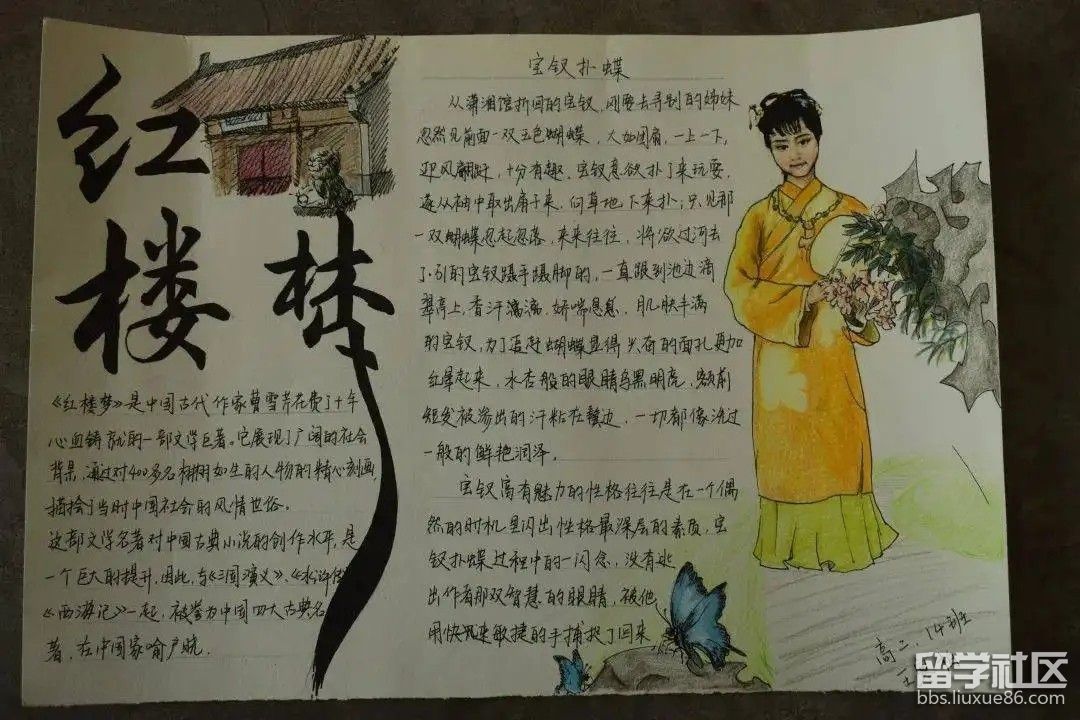 红
楼梦
《红楼梦》是中国古代作家曹雪芹花费了十年
心血铸就的一部文学巨著。它展现了广阔的社会
背景,通过对400多名栩栩如生的人物的精心刻画,
描绘了当时中国社会的风情世俗。
这部文学名著对中国古典小说的创作水平,是
一个巨大的提升,因此,与《三国演义》、《水浒传》
《西游记》一起,被誉为中国四大古典名
著,在中国家喻户晓.
宝钗扑蝶
从潇湘馆折回的宝钗,刚要去寻别的姊妹
忽然见前面一双玉色蝴蝶,大如团扇,一上一下,
迎风翩跹,十分有趣.宝钗意欲扑了来玩耍,
遂从袖中取出扇子来,向草地下来扑;只见那
一双蝴蝶忽起忽落,来来往往,将欲过河去
了.引的宝钗蹑手蹑脚的,一直跟到池边滴
翠亭上,香汗淋漓,娇喘息息,肌肤丰满
的宝钗,为了追赶蝴蝶显得兴奋的面孔更加
红晕起来,水杏般的眼睛乌黑明亮,额前
短发被渗出的汗粘在鬓边,一切都像洗过
一般的鲜艳润泽,
宝钗富有魅力的性格往往是在一个偶
然的时机里闪出性格最深层的素质,宝
钗扑蝶过程中的一闪念,没有逃
出作者那双智慧的眼睛,被他
用快而敏捷的手捕捉了回来
高二 14班
留学社区
bbs.liuxue86.com